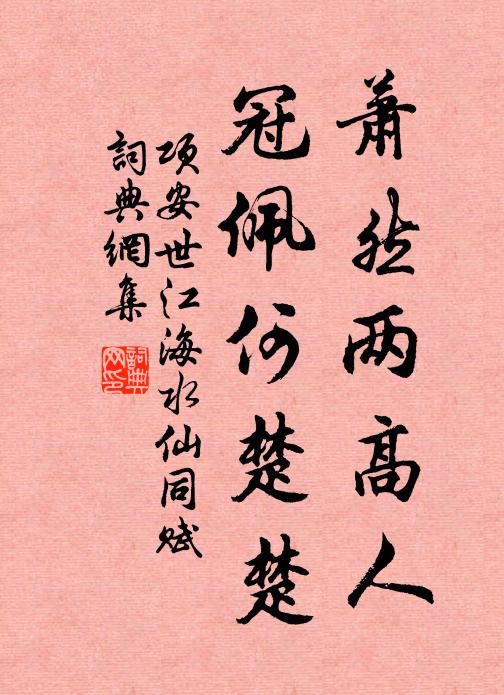 萧然两高人
冠佩何楚楚
项安世江海水仙同赋
詞典網集
詞典網印